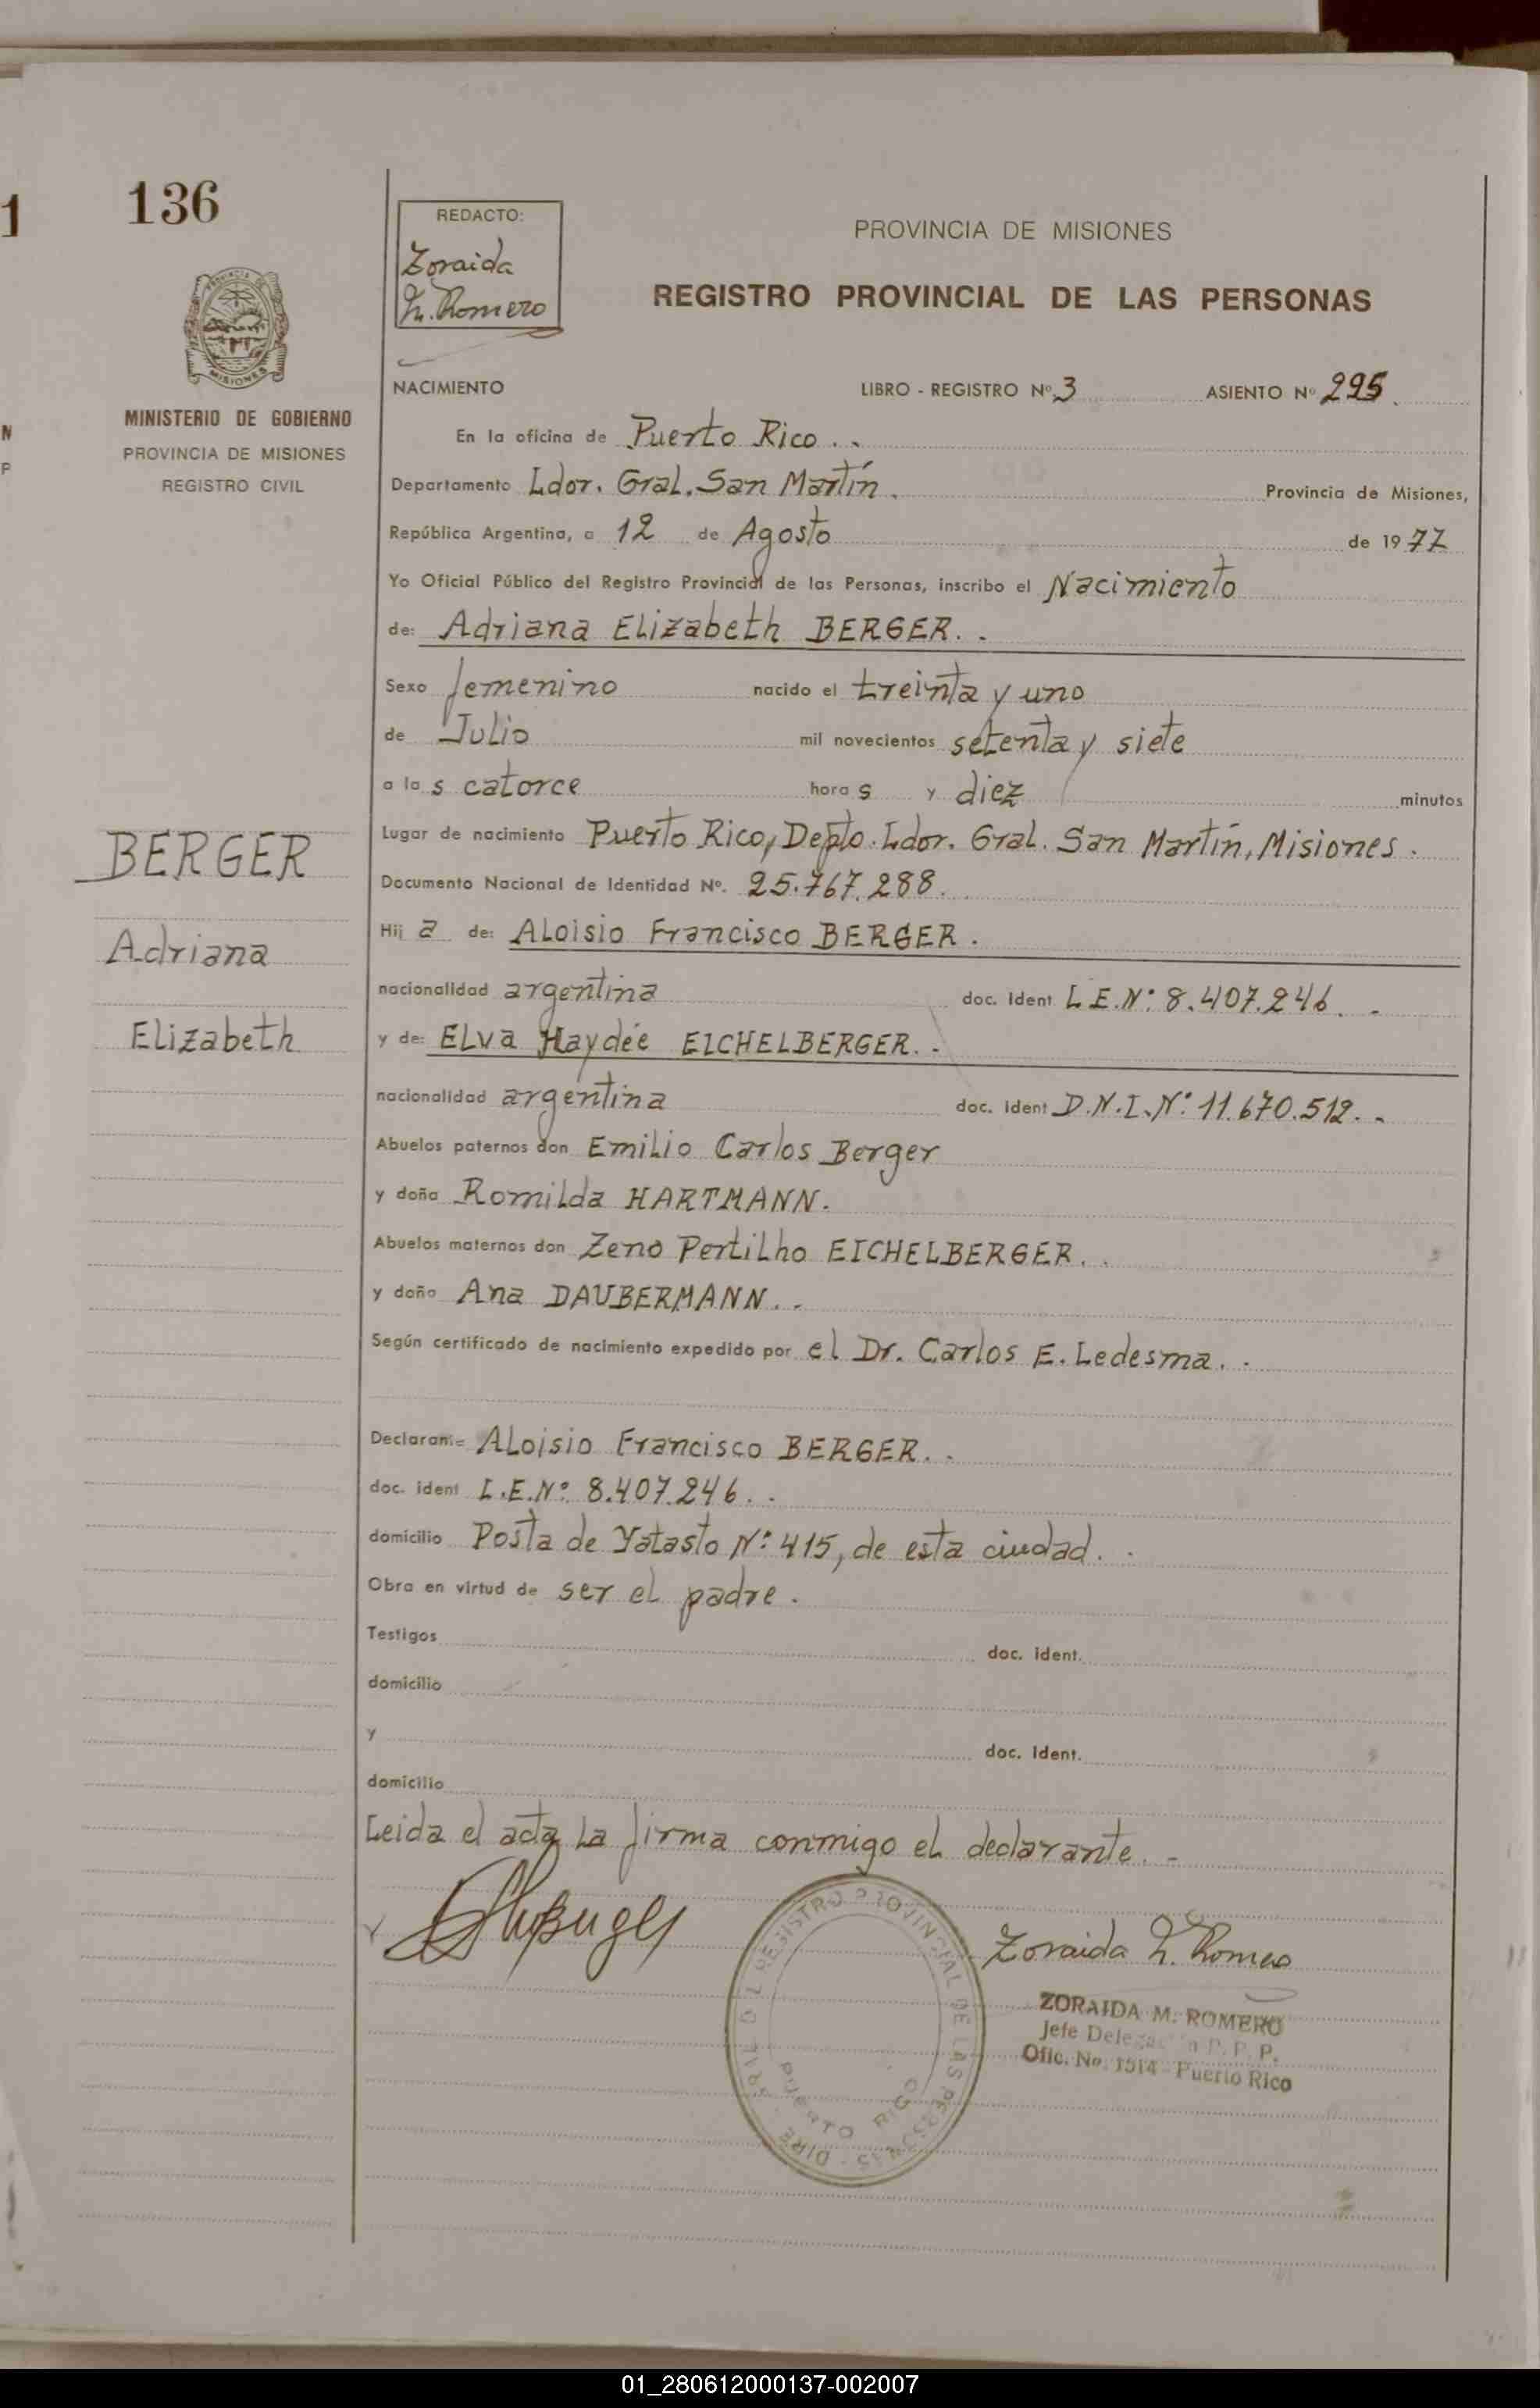 136
1
N
P
REDACTO:
Zoraida
M. Romero
PROVINCIA DE MISIONES
REGISTRO PROVINCIAL DE LAS PERSONAS
MISIONES
MINISTERIO DE GOBIERNO
PROVINCIA DE MISIONES
REGISTRO CIVIL
NACIMIENTO LIBRO - REGISTRO Nº 3 ASIENTO Nº 295.
En la oficina de Puerto Rico..
Departamento Ldor. Gral. San Martín. Provincia de Misiones,
República Argentina, a 12 de Agosto de 1977
Yo Oficial Público del Registro Provincial de las Personas, inscribo el Nacimiento
de: Adriana Elizabeth BERGER..
Sexo femenino nacido el treinta y uno
de Julio mil novecientos setenta y siete
a la s catorce hora s y diez minutos
Lugar de nacimiento Puerto Rico, Depto. Ldor. Gral. San Martín, Misiones.
Documento Nacional de Identidad Nº. 25.767.288.
Hij a de: Aloisio Francisco BERGER.
nacionalidad argentina doc. Ident L.E.Nº: 8.407.246..
y de: Elva Haydée EICHELBERGER..
nacionalidad argentina doc. Ident D.N.I.Nº: 11.670.512..
Abuelos paternos don Emilio Carlos Berger
y doña Romilda HARTMANN.
Abuelos maternos don Zeno Pertilho EICHELBERGER..
y doña Ana DAUBERMANN..
Según certificado de nacimiento expedido por el Dr. Carlos E. Ledesma..
Declarante Aloisio Francisco BERGER..
doc. ident L.E.Nº: 8.407.246..
domicilio Posta de Yatasto Nº: 415, de esta ciudad..
Obra en virtud de ser el padre.
Testigos doc. ident.
domicilio
y doc. Ident.
domicilio
Leida el acta la firma conmigo el declarante.-
BERGER
Adriana
Elizabeth
DIRE GRAL DEL REGISTRO PROVINCIAL DE LAS PERSONAS
PUERTO RICO
Zoraida M. Romero
ZORAIDA M. ROMERO
Jefe Delegación R. P. P.
Ofic. No. 1514 - Puerto Rico
01_280612000137-002007